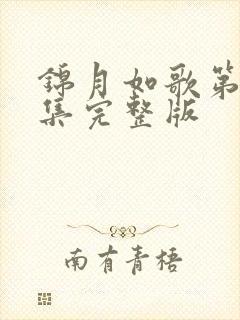 錦月如歌第
集完整版
南有青梧